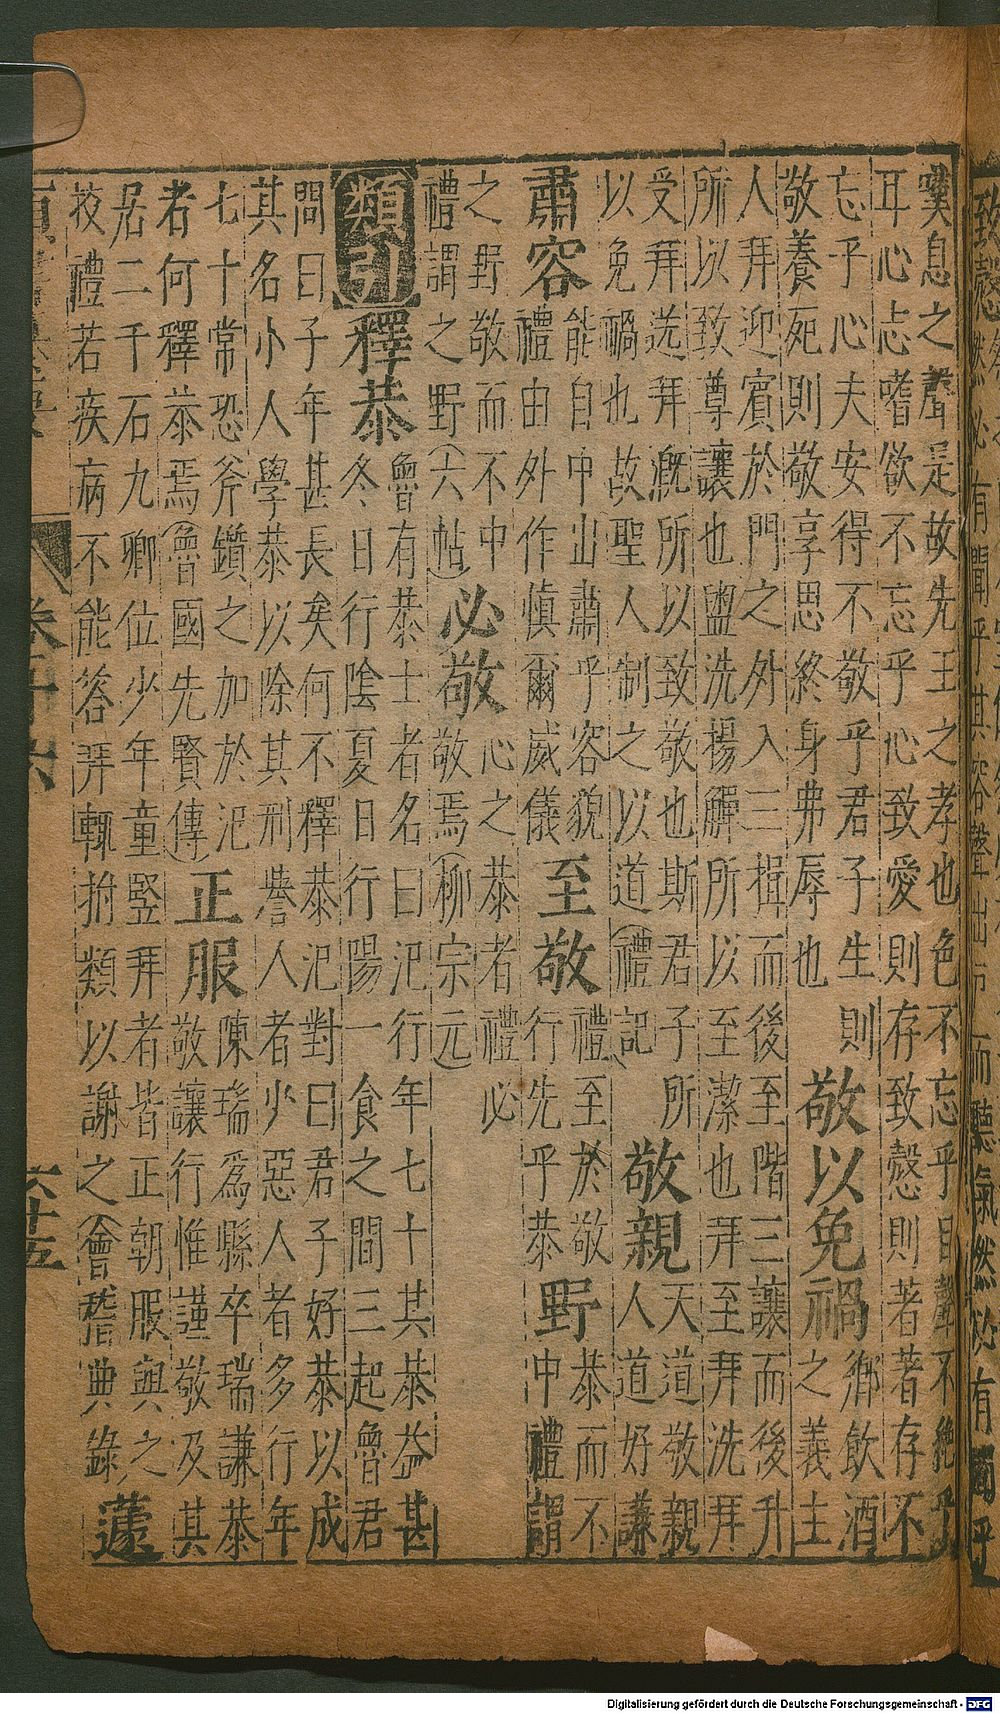 嘆息之聲是故先王之孝也色不忘乎目聲不絶乎
耳心志嗜欲不忘乎心致愛則存致愨則著著存不
忘乎心夫安得不敬乎君子生則
敬養死則敬享思終身弗辱也
敬以免禍
鄉飲酒
之義主
人拜迎賓於門之外入三揖而後至階三讓而後升
所以致尊讓也盥洗揚觶所以至潔也拜至拜洗拜
受拜送拜旣所以致敬也斯君子所
以免禍也故聖人制之以道禮記
敬親
天道敬親
人道好謙
肅容
能自中出肅乎容貌
禮由外作慎爾威儀
至敬
禮至於敬
行先乎恭
野
恭而不
中禮謂
之野敬而不中
禮謂之野六帖
必敬
心之恭者禮必
敬焉柳宗元
類引
釋恭
魯有恭士者名曰汜行年七十其恭益甚
冬日行陰夏日行陽一食之間三起魯君
問曰子年甚長矣何不釋恭汜對曰君子好恭以成
其名小人學恭以除其刑譽人者少惡人者多行年
七十常恐斧鑕之加於汜
者何釋恭焉魯國先賢傳
正服
陳瑞爲縣卒瑞謙恭
敬讓行惟謹敬及其
居二千石九卿位少年童豎拜者皆正朝服與之
交禮若疾病不能答拜輒拊類以謝之會稽典錄
蘧
卷
六十五
Digitalisierung gefördert durch die Deutsche Forschungsgemeinschaft - DFG